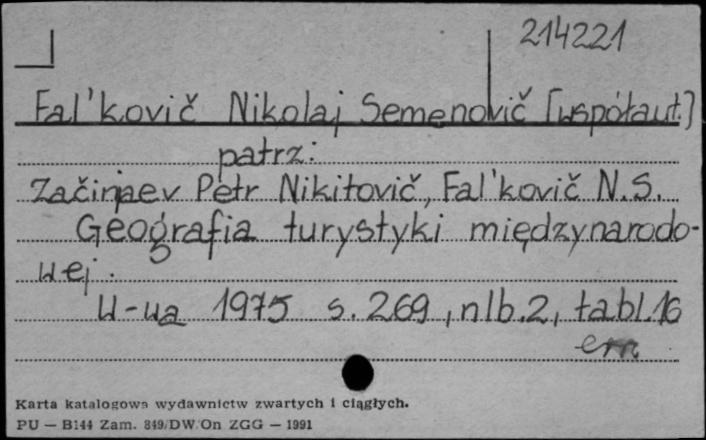 214221
Fal'kovič Nikolaj Semenovič [współaut.]
patrz:
Začinjaev Petr Nikitovič, Fal'kovič N.S.
Geografia turystyki międzynarodo-
wej.
W-wa 1975 s. 269, nlb. 2, tabl. 16
Karta katalogowa wydawnictw zwartych i ciągłych.
PU — B144 Zam. 849/DW/On ZGG — 1991